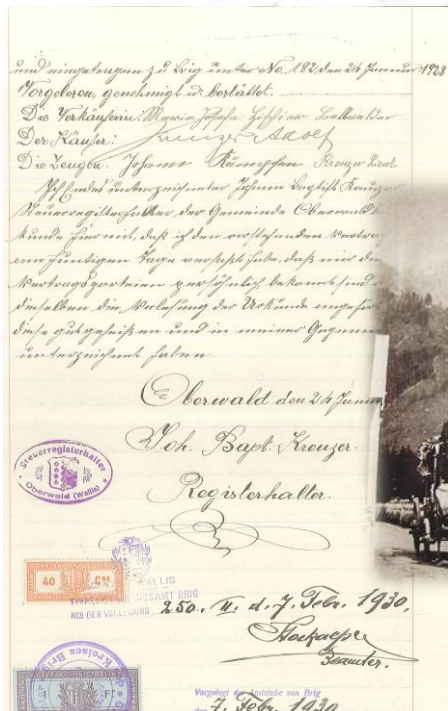 und eingetragen zu Brig unter No. 182 den 24 Januar 1928
Vorgelesen, genehmigt u. bestättet.
Die Verkäuferin: Maria Josefa Hischier
Der Käufer: Kreuzer Adolf
Die Zeugen: Johann Kämpfen Kreuzer
Ich Endes unterzeichneter Johann Baptist Kreuzer
Steuerregisterhalter der Gemeinde Oberwald
kunde hiermit, daß ich den vorstehenden Vertrag
am heutigen Tage verfaßt habe, daß mir die
Vertragsparteien persönlich bekannt sind
dieselben die Verlesung der Urkunde angehört
diese gutgeheißen und in meiner Gegenwart
unterzeichnet haben.
Oberwald den 24 Januar
Joh. Bapt. Kreuzer.
Registerhalter.
Steuerregisterhalter
Oberwald (Wallis)
40 Cts
WALLIS
AMT BRIG
250. II. d. 7. Febr. 1930.
Beamter.
Kreises Brig
Fr
Vorgelegt der Amtstube von Brig
den 7. Febr. 1930